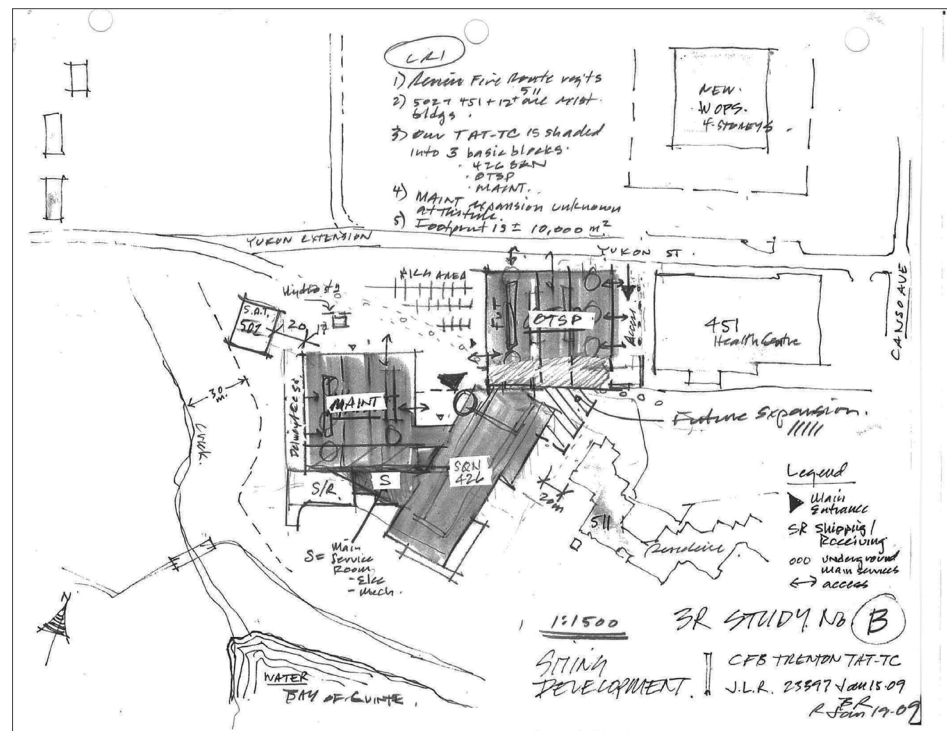 LRI
1) Review Fire Route req'ts
511
2) 502 + 451 + 12+ are exist.
bldgs.
3) Our TAT-TC IS shaded
into 3 basic blocks.
· 426 SQN
· OTSP
· MAINT.
4) MAINT expansion unknown
at this time.
5) Footprint is ± 10,000 m²
NEW.
WOPS.
4-STOREYS.
YUKON EXTENSION
YUKON ST.
CANSO AVE
PKG AREA
Hydro stn
S.A.T.
502
20
OTSP
FUT
Access
451
Health Centre
30
m.
Creek.
MAINT
Future Expansion.
S/R.
S
SQN
426
20m
511
Residence
S = Main
Service
Room
- Elec
- Mech.
Legend
Main
Entrance
SR Shipping/
Receiving
ooo underground
main services
<-> access
N
WATER
BAY OF QUINTE
1:1500
SITING
DEVELOPMENT.
3R STUDY No B
CFB TRENTON TAT-TC
J.L.R. 23397 Jan 15-09
BR
R Jan 19-09